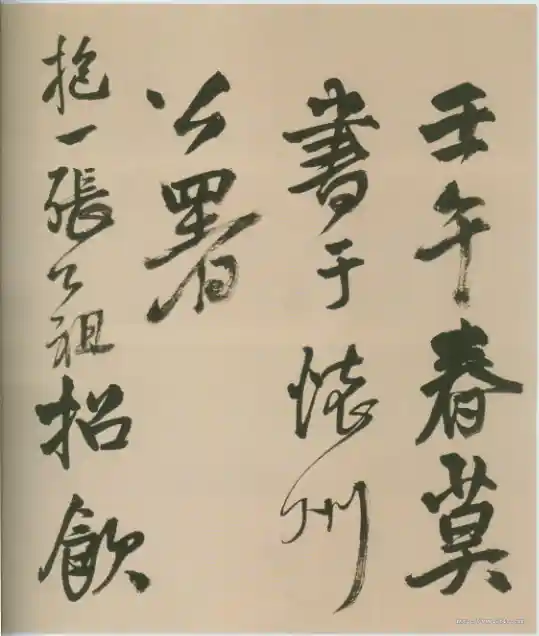 壬午春莫
書于懐州
公署
抱一張公祖招飲